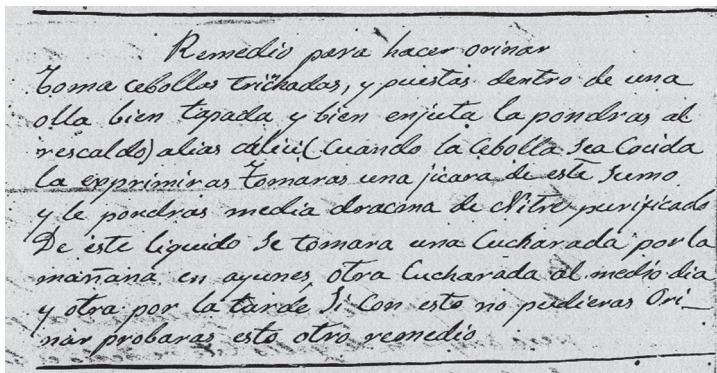 Remedio para hacer orinar
toma cebollas trinchadas, y puestas dentro de una
olla bien tapada y bien enjuta la pondras al
rescaldo) alias caliu( Cuando la Cebolla sea Cocida
la exprimiras tomaras una jicara de este sumo
y le pondras media dracma de Nitro purificado
De este liquido se tomara una Cucharada por la
mañana en ayunes, otra Cucharada al medio dia
y otra por la tarde, Si Con esto no pudieras Ori_
nar probaras esto otro remedio